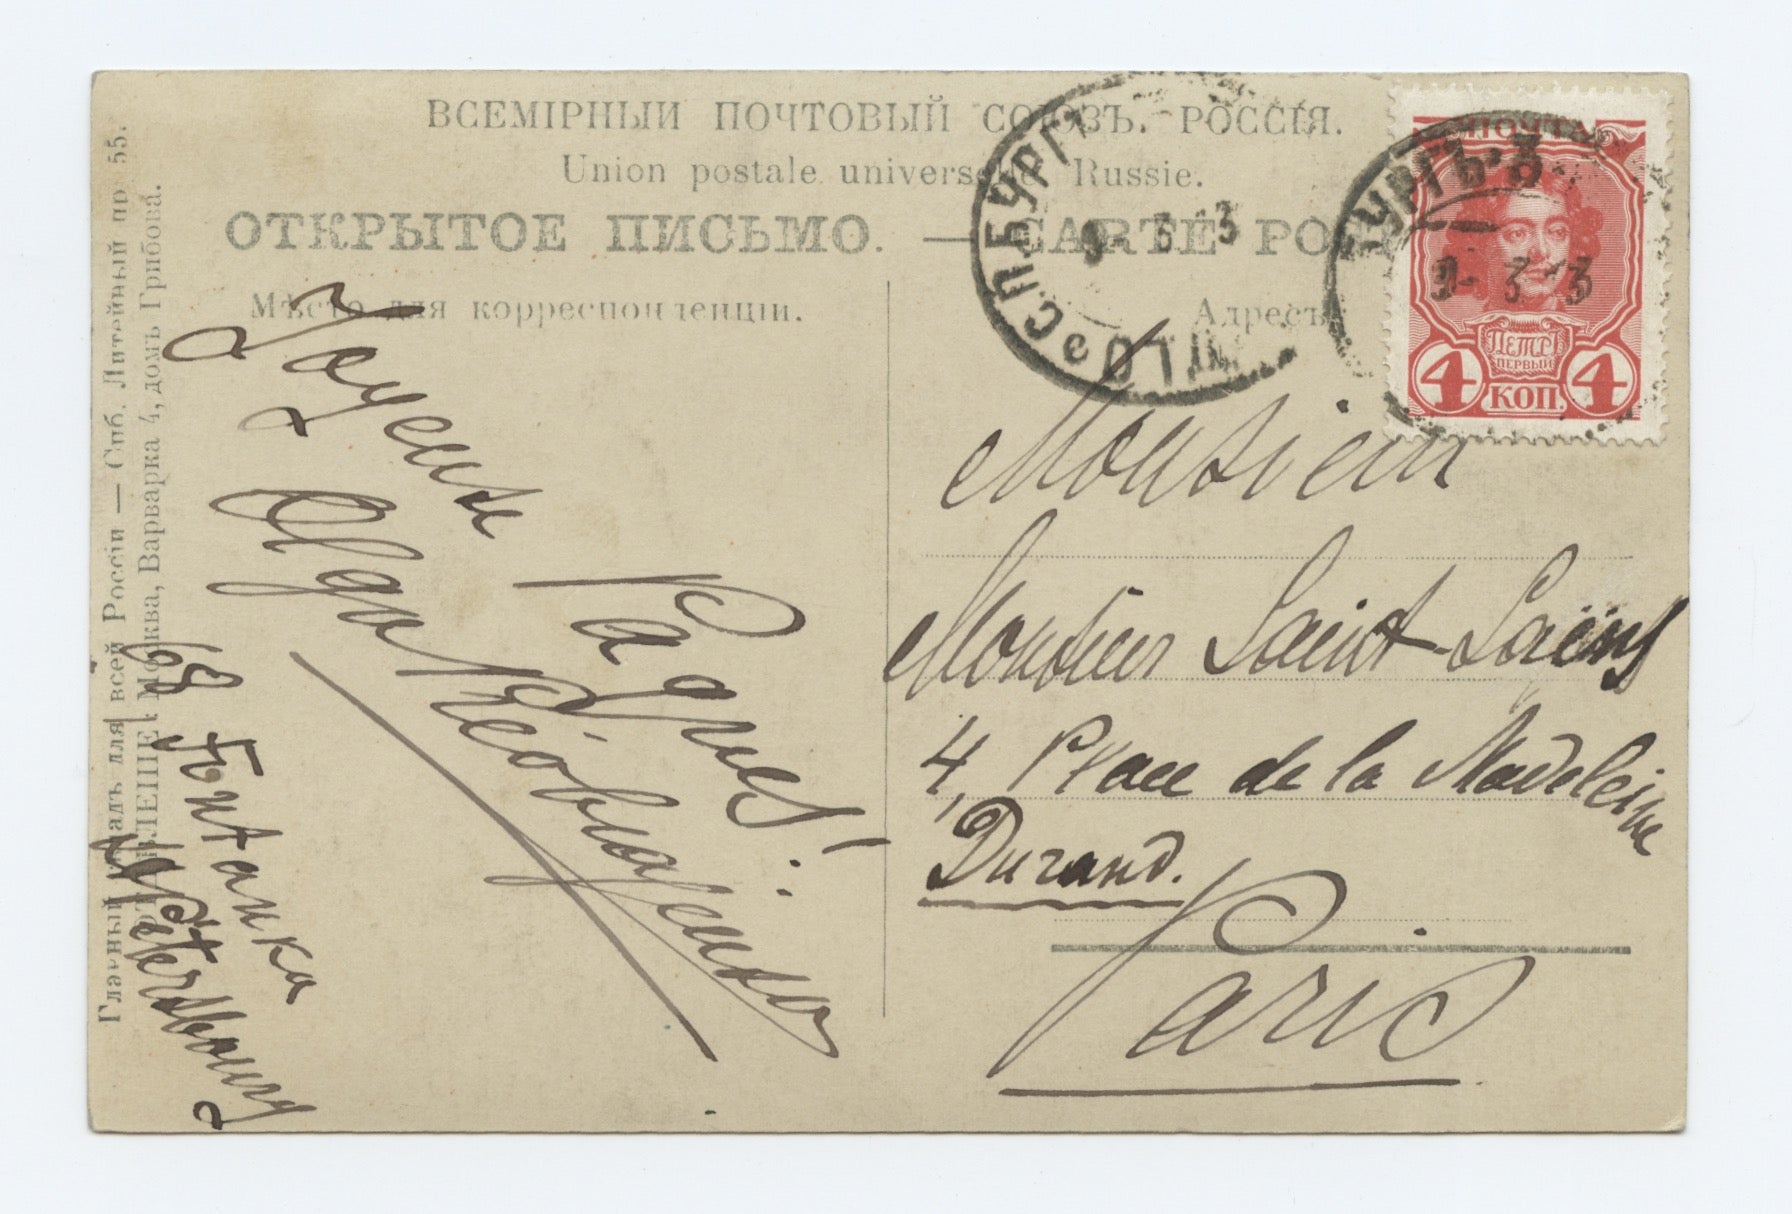 ВСЕМІРНЫЙ ПОЧТОВЫЙ СОЮЗЪ. РОССІЯ.
Union postale universelle Russie.
ОТКРЫТОЕ ПИСЬМО. — CARTE PO
Мѣсто для корреспонденціи.
Адресъ
С.ПБУРГЪ
9 3 3
БУРГЪ-3
9 - 3 3
ПОЧТА
ПЕТРЪ
ПЕРВЫЙ
4 КОП. 4
Joyeuses
Pâques!
Olga
68 Fontanka
St Pétersbourg
Monsieur
Monsieur Saint-Saëns
4, Place de la Madeleine
Durand.
Paris
Главный складъ для всей Россіи — Спб. Литейный пр. 55.
ОТДѢЛЕНІЕ: Москва, Варварка 4, домъ Грибова.